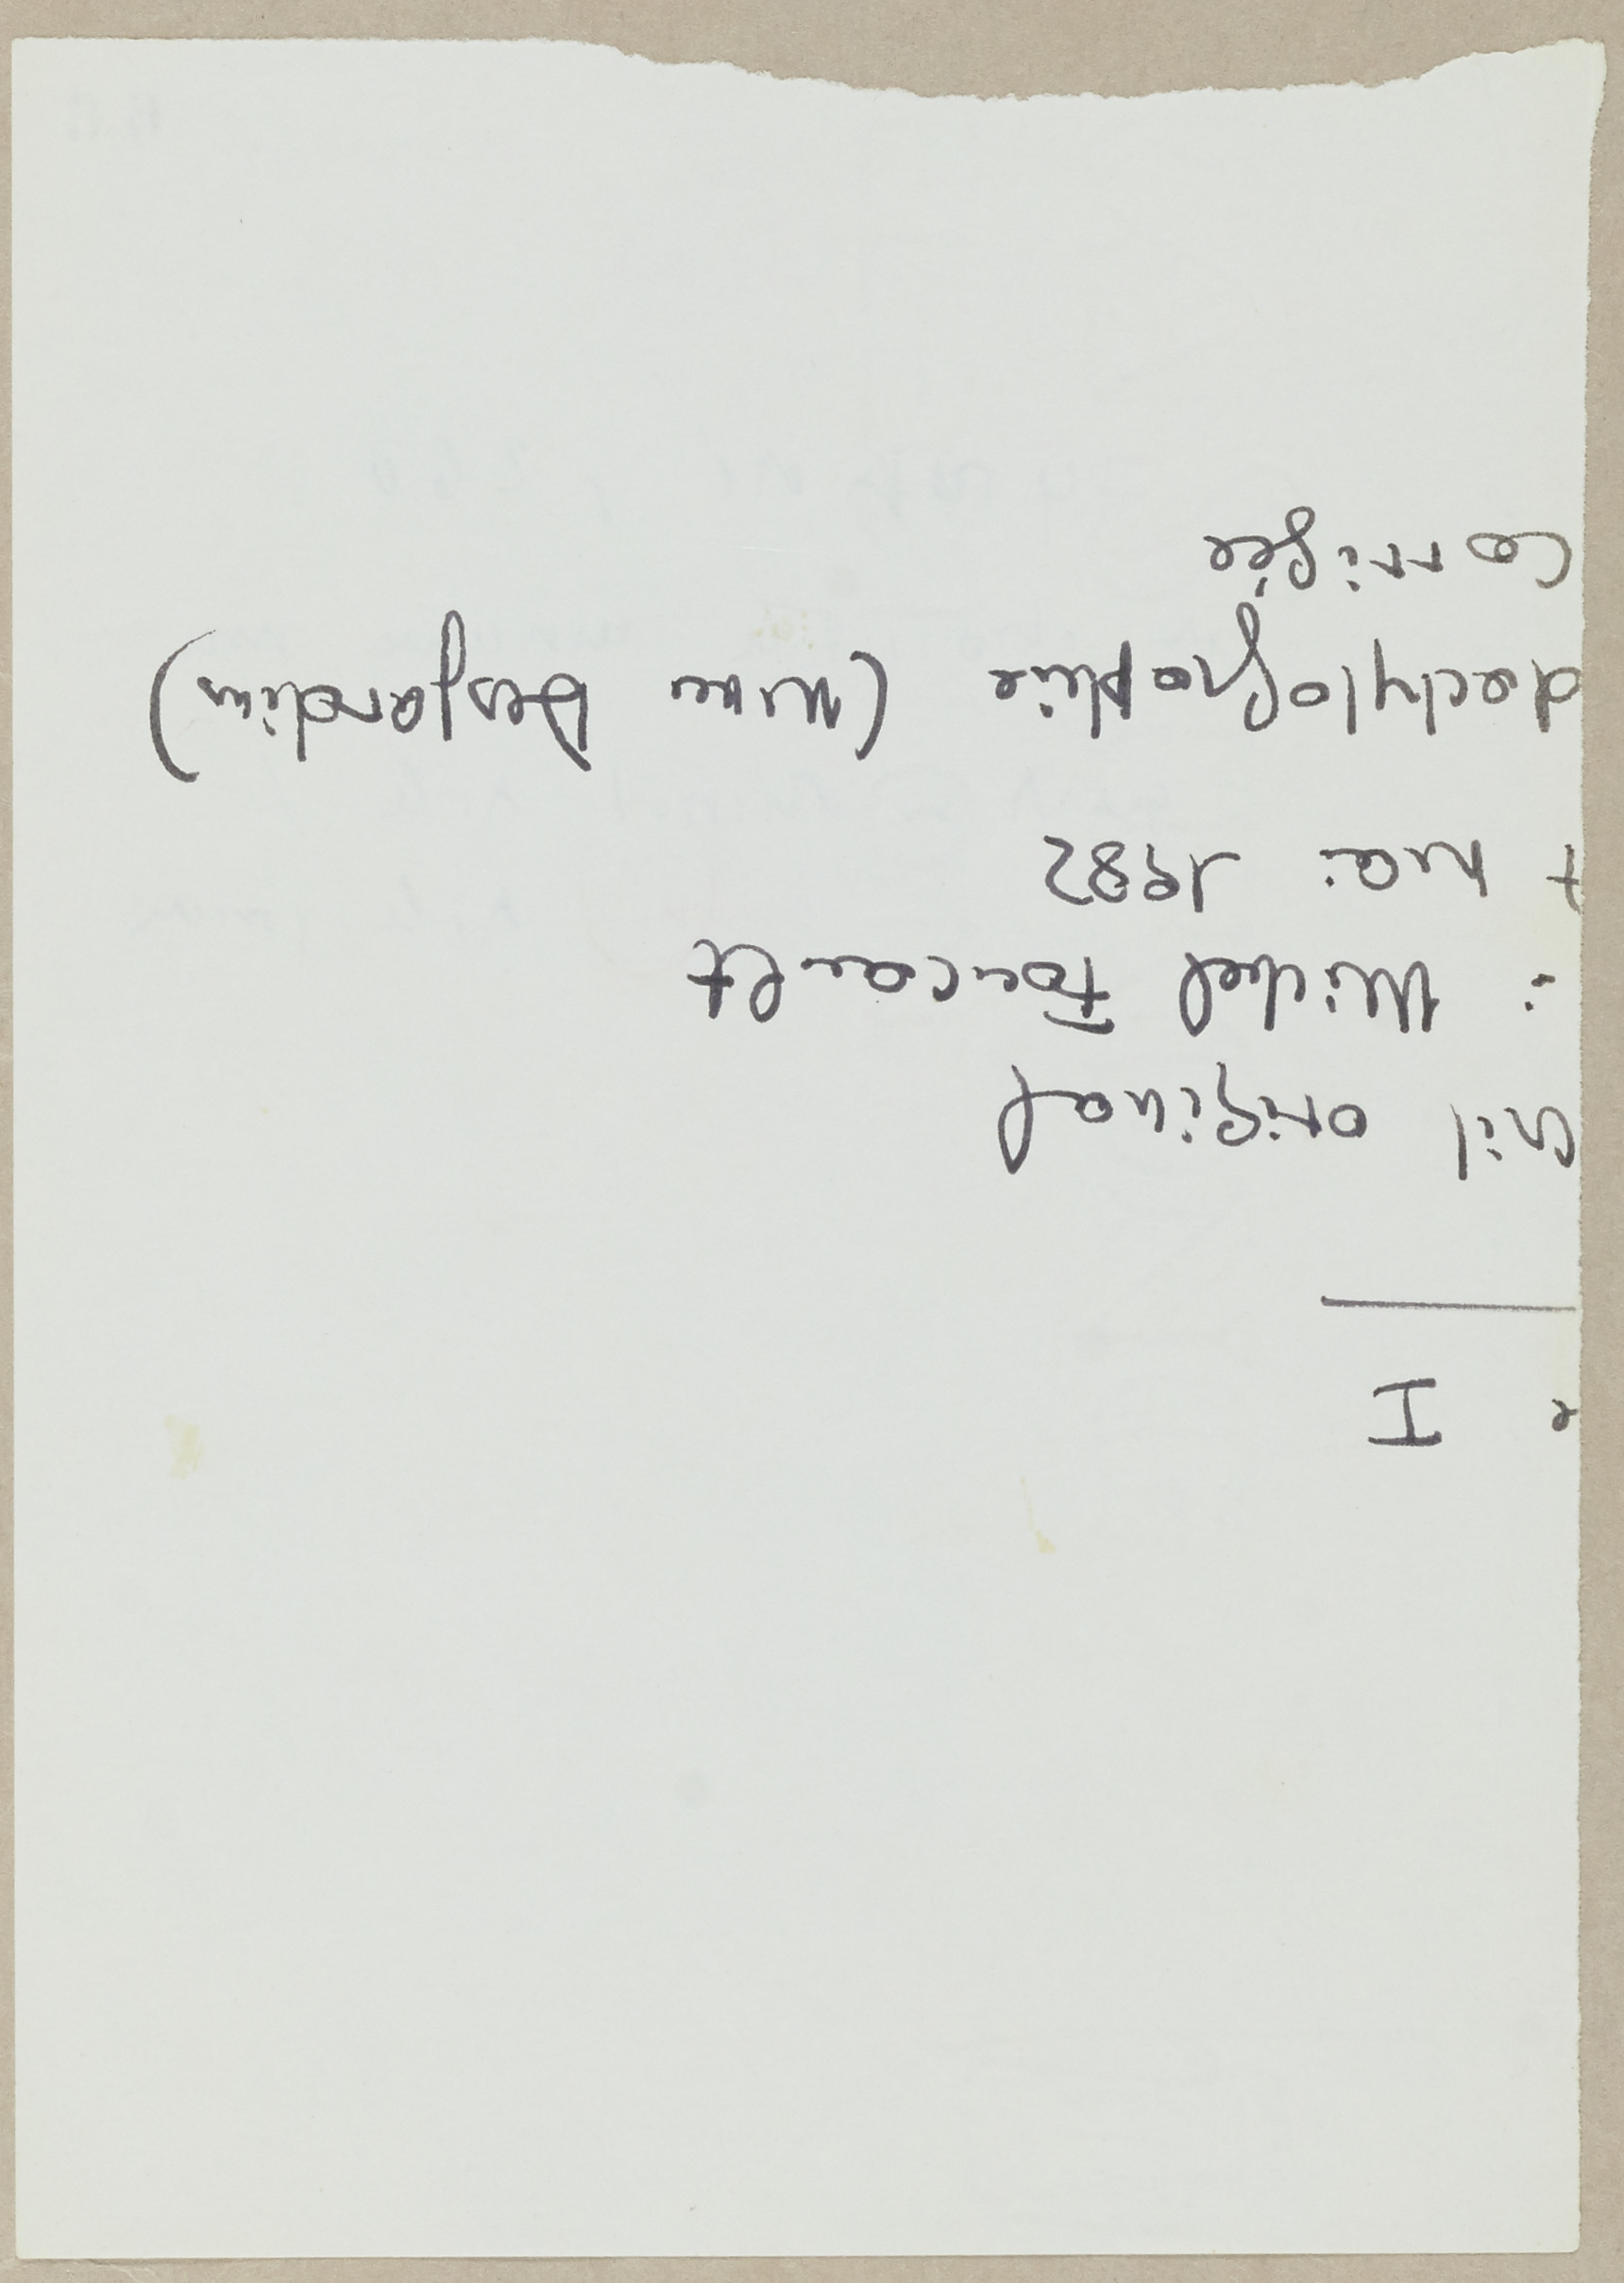 e I
crit original
: Michel Foucault
t mai 1982
dactylographie (Mme Desjardins)
corrigée